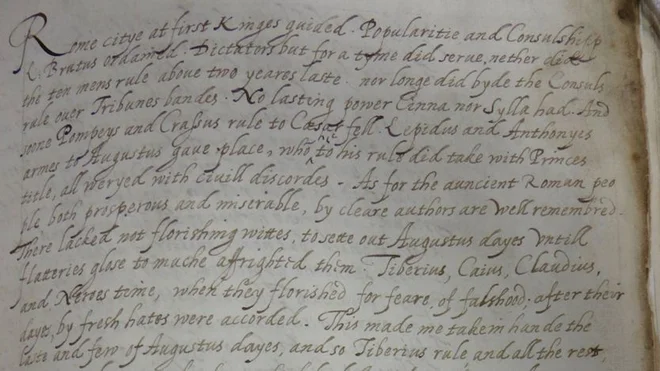 Rome citye at first Kinges guided. Popularitie and Consulshipp
L. Brutus ordained. Dictators but for a tyme did serve, nether did
the ten mens rule above two yeares laste. nor longe did byde the Consuls
rule over Tribunes bandes. No lasting power Cinna nor Sylla had. And
soone Pompeys and Crassus rule to Cæsar fell. Lepidus and Anthonyes
armes to Augustus gave place, who to his rule did take with Princes
title, all weryed with civill discordes. As for the auncient Roman peo
ple both prosperous and miserable, by cleare authors are well remembred.
There lacked not florishing wittes, to sette out Augustus dayes untill
flatteries glose to muche affrighted them. Tiberius, Caius, Claudius,
and Neroes time, when they florished for feare, of falshood; after their
dayes, by fresh hates were accorded. This made me take hande the
laste and few of Augustus dayes, and so Tiberius rule and all the rest,